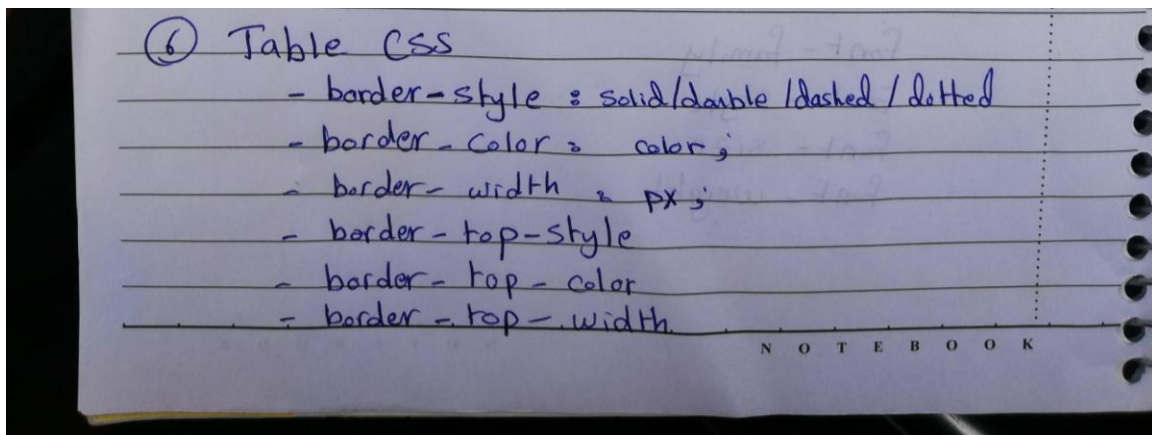 6 Table CSS
- border-style : solid/double/dashed/dotted
- border-color : color;
- border-width : px;
- border-top-style
- border-top-color
- border-top-width
NOTEBOOK